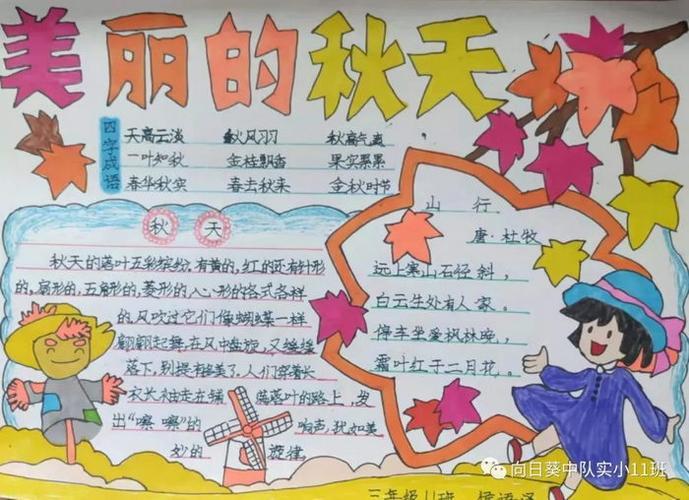 美丽的秋天
四字成语
天高云淡 秋风习习 秋高气爽
一叶知秋 金桂飘香 果实累累
春华秋实 春去秋来 金秋时节
秋天
秋天的落叶五彩缤纷,有黄的,红的还有针形
的,扇形的,五角形的,菱形的,心形的各式各样
的,风吹过它们像蝴蝶一样
翩翩起舞,在风中盘旋,又缓缓
落下,别提有多美了,人们穿着长
衣长袖走在铺满落叶的路上,发
出“嚓嚓”的响声,犹如美
妙的旋律
山行
唐·杜牧
远上寒山石径斜,
白云生处有人家。
停车坐爱枫林晚,
霜叶红于二月花。
三年级11班
向日葵中队实小11班